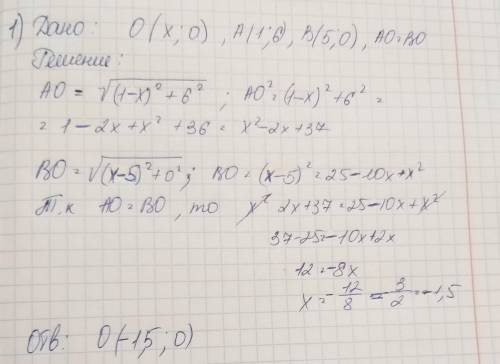 1) Дано: O(x;0), A(1;6), B(5;0), AO=BO
Решение:
AO = √((1-x)²+6²) ; AO²=(1-x)²+6² =
= 1-2x+x²+36 = x²-2x+37
BO=√((x-5)²+0²); BO=(x-5)²=25-10x+x²
Т.к AO=BO, то x² 2x+37=25-10x+x²
37-25=-10x+2x
12=-8x
x=-12/8=-3/2=-1,5
Отв: O(-1,5;0)